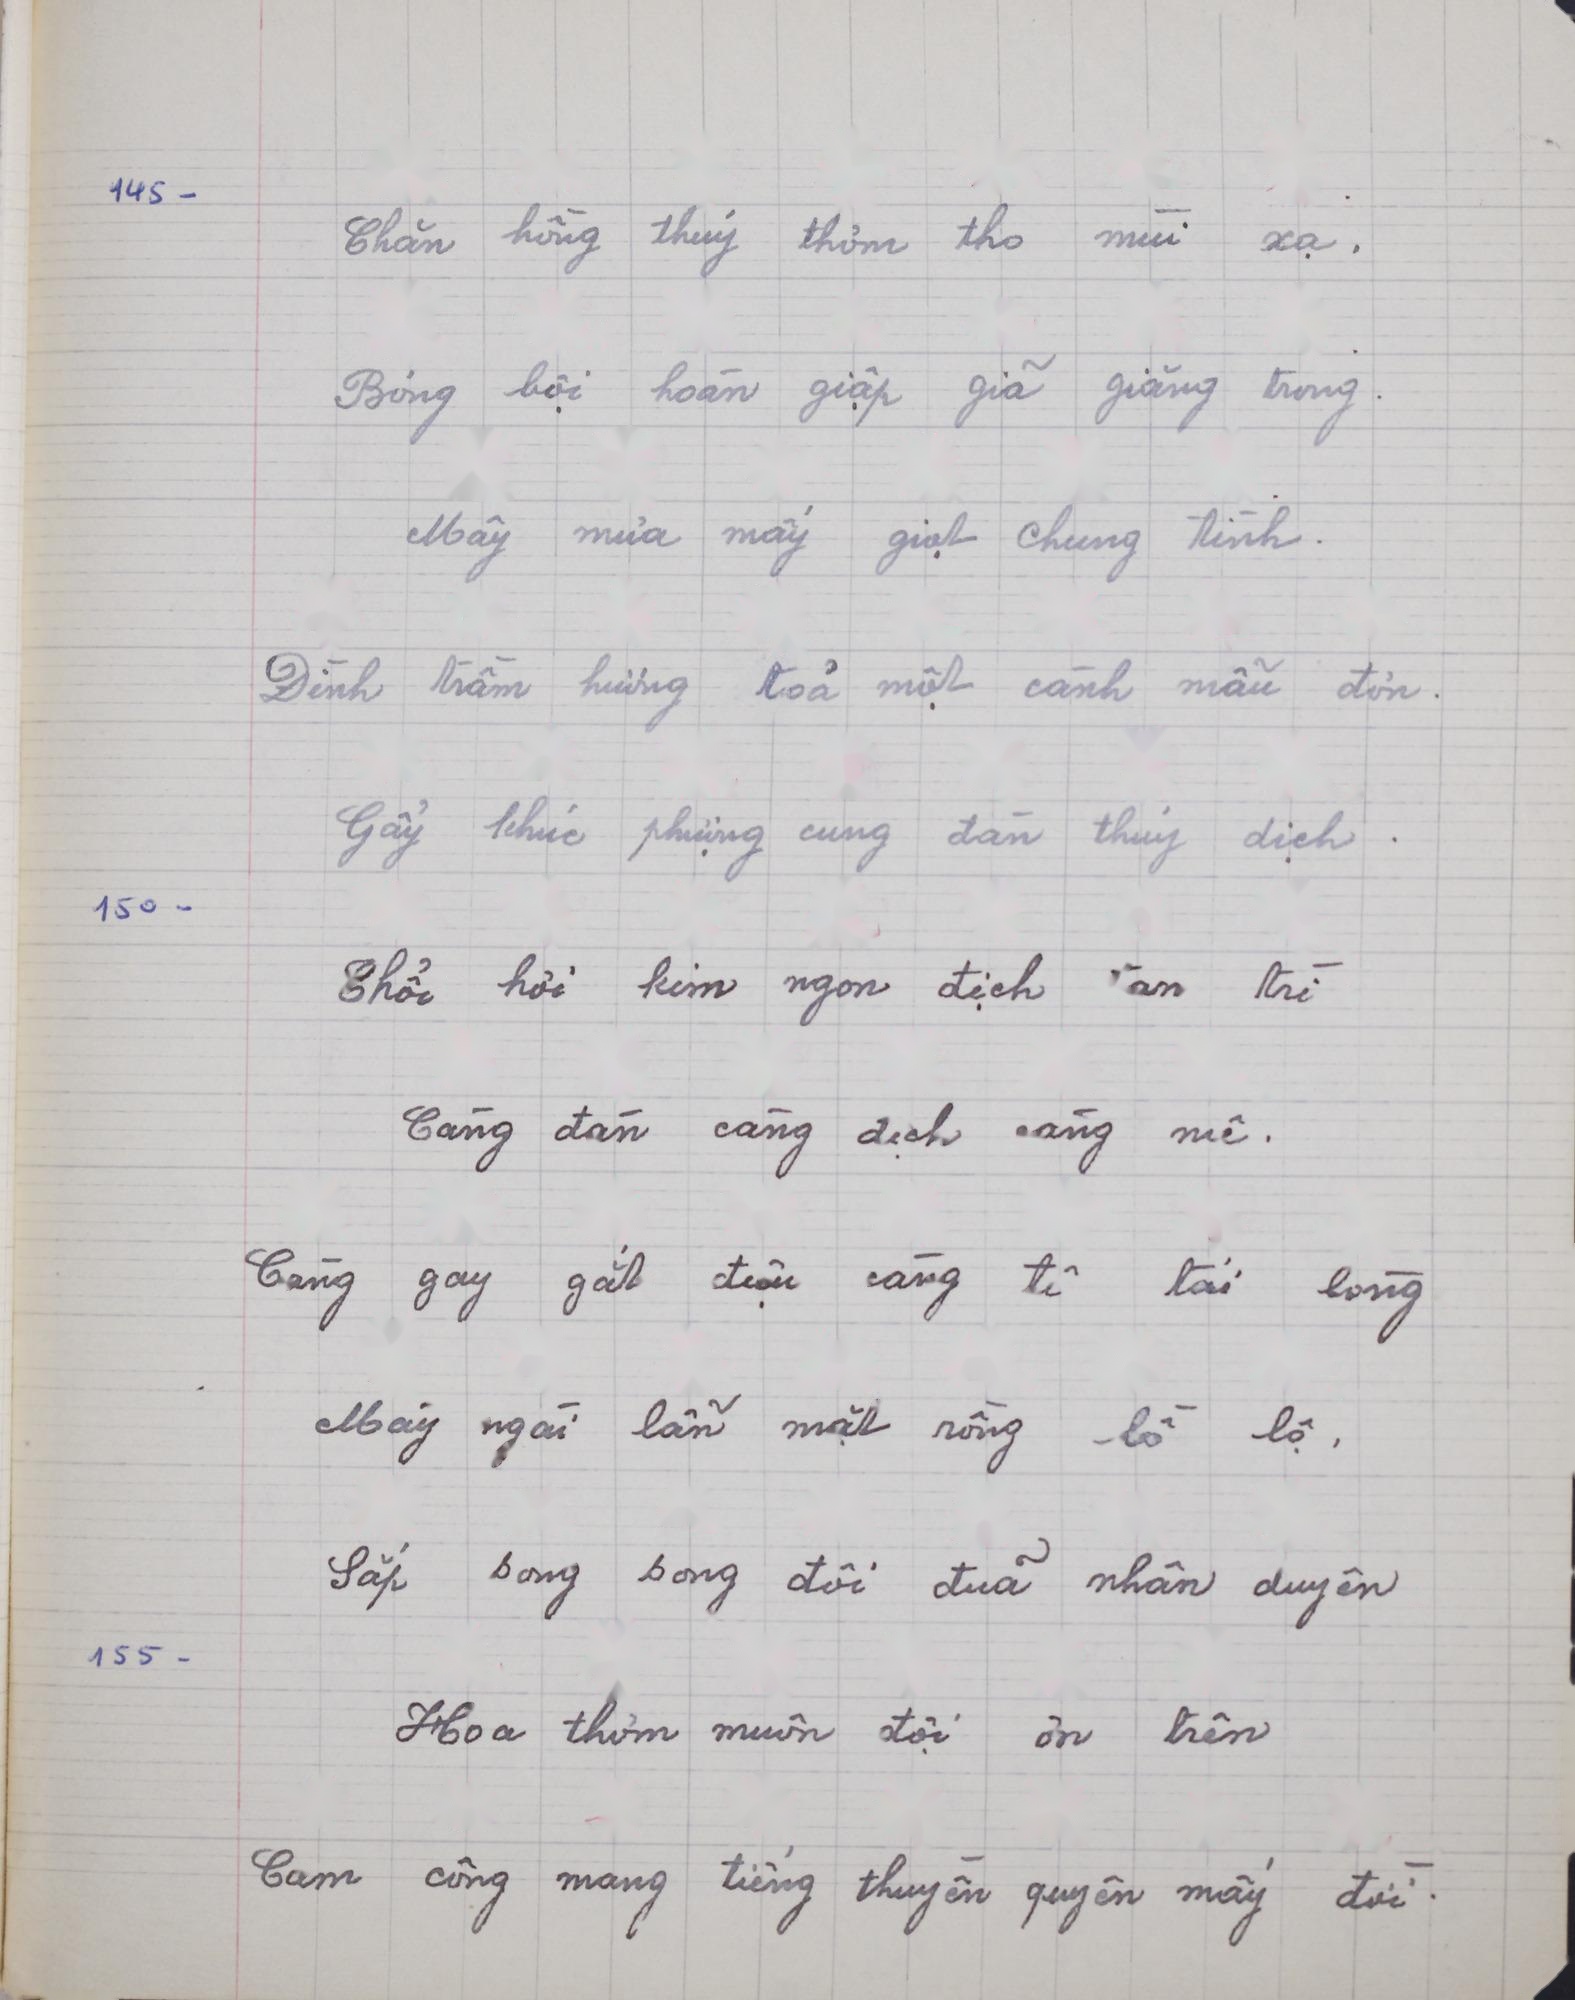 145 -
Chăn hồng thuý thơm tho mùi xạ.
Bóng bội hoàn giập giã giăng trong.
Mây mưa mấy giọt chung tình.
Đình trầm hương toả một cành mẫu đơn.
Gẩy khúc phượng cung đàn thúy dịch.
150 -
Thổi hơi kim ngon địch trì
Càng đàn càng dịch càng mê.
Càng gay gắt điệu càng tê tái lòng
Mày ngài lẫn mặt rồng lồ lộ,
Sắp song song đôi đuã nhân duyên
155 -
Hoa thơm muôn đội ơn trên
Cam công mang tiếng thuyền quyên mấy đời.